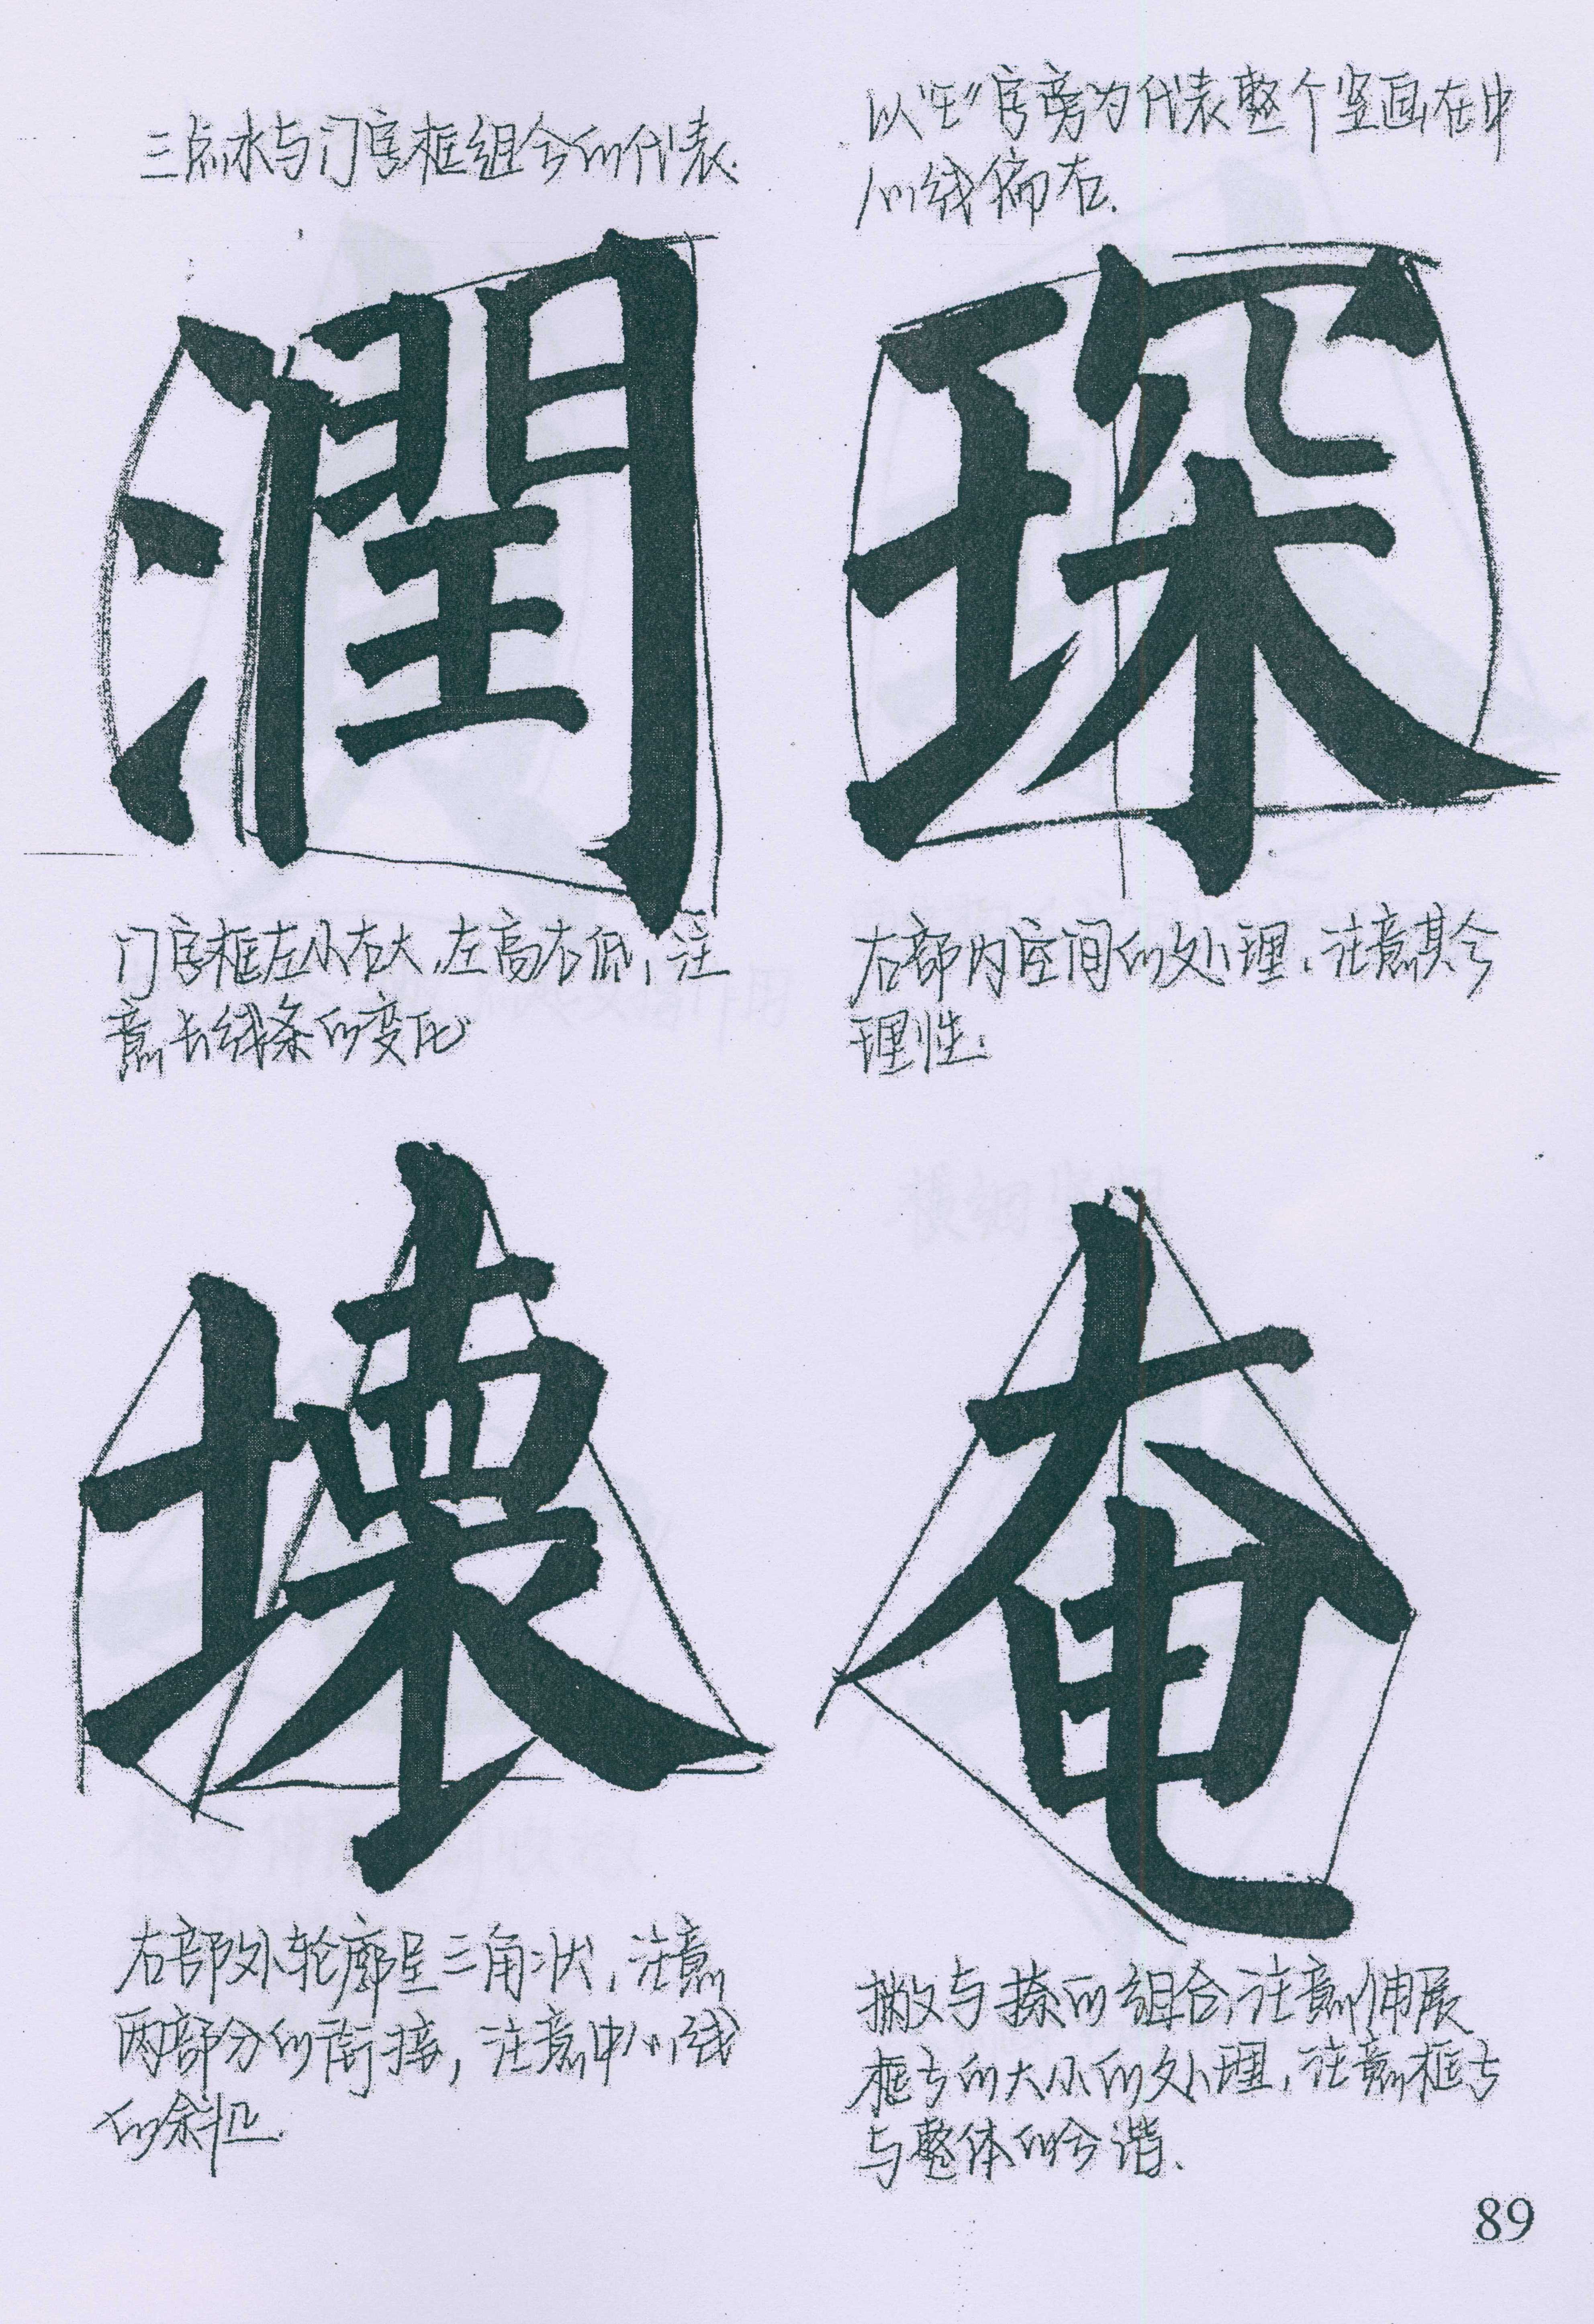 三点水与门字框组合的代表.
潤
门字框左小右大,左高右低,注
意长线条的变化
以"王"字旁为代表整个竖画在中
心线偏右.
琛
右部内空间的处理,注意其合
理性.
壊
右部外轮廓呈三角状,注意
两部分的衔接,注意中心线
的斜正.
奄
撇与捺的组合,注意伸展
框与的大小的处理,注意框与
与整体的合谐.
89